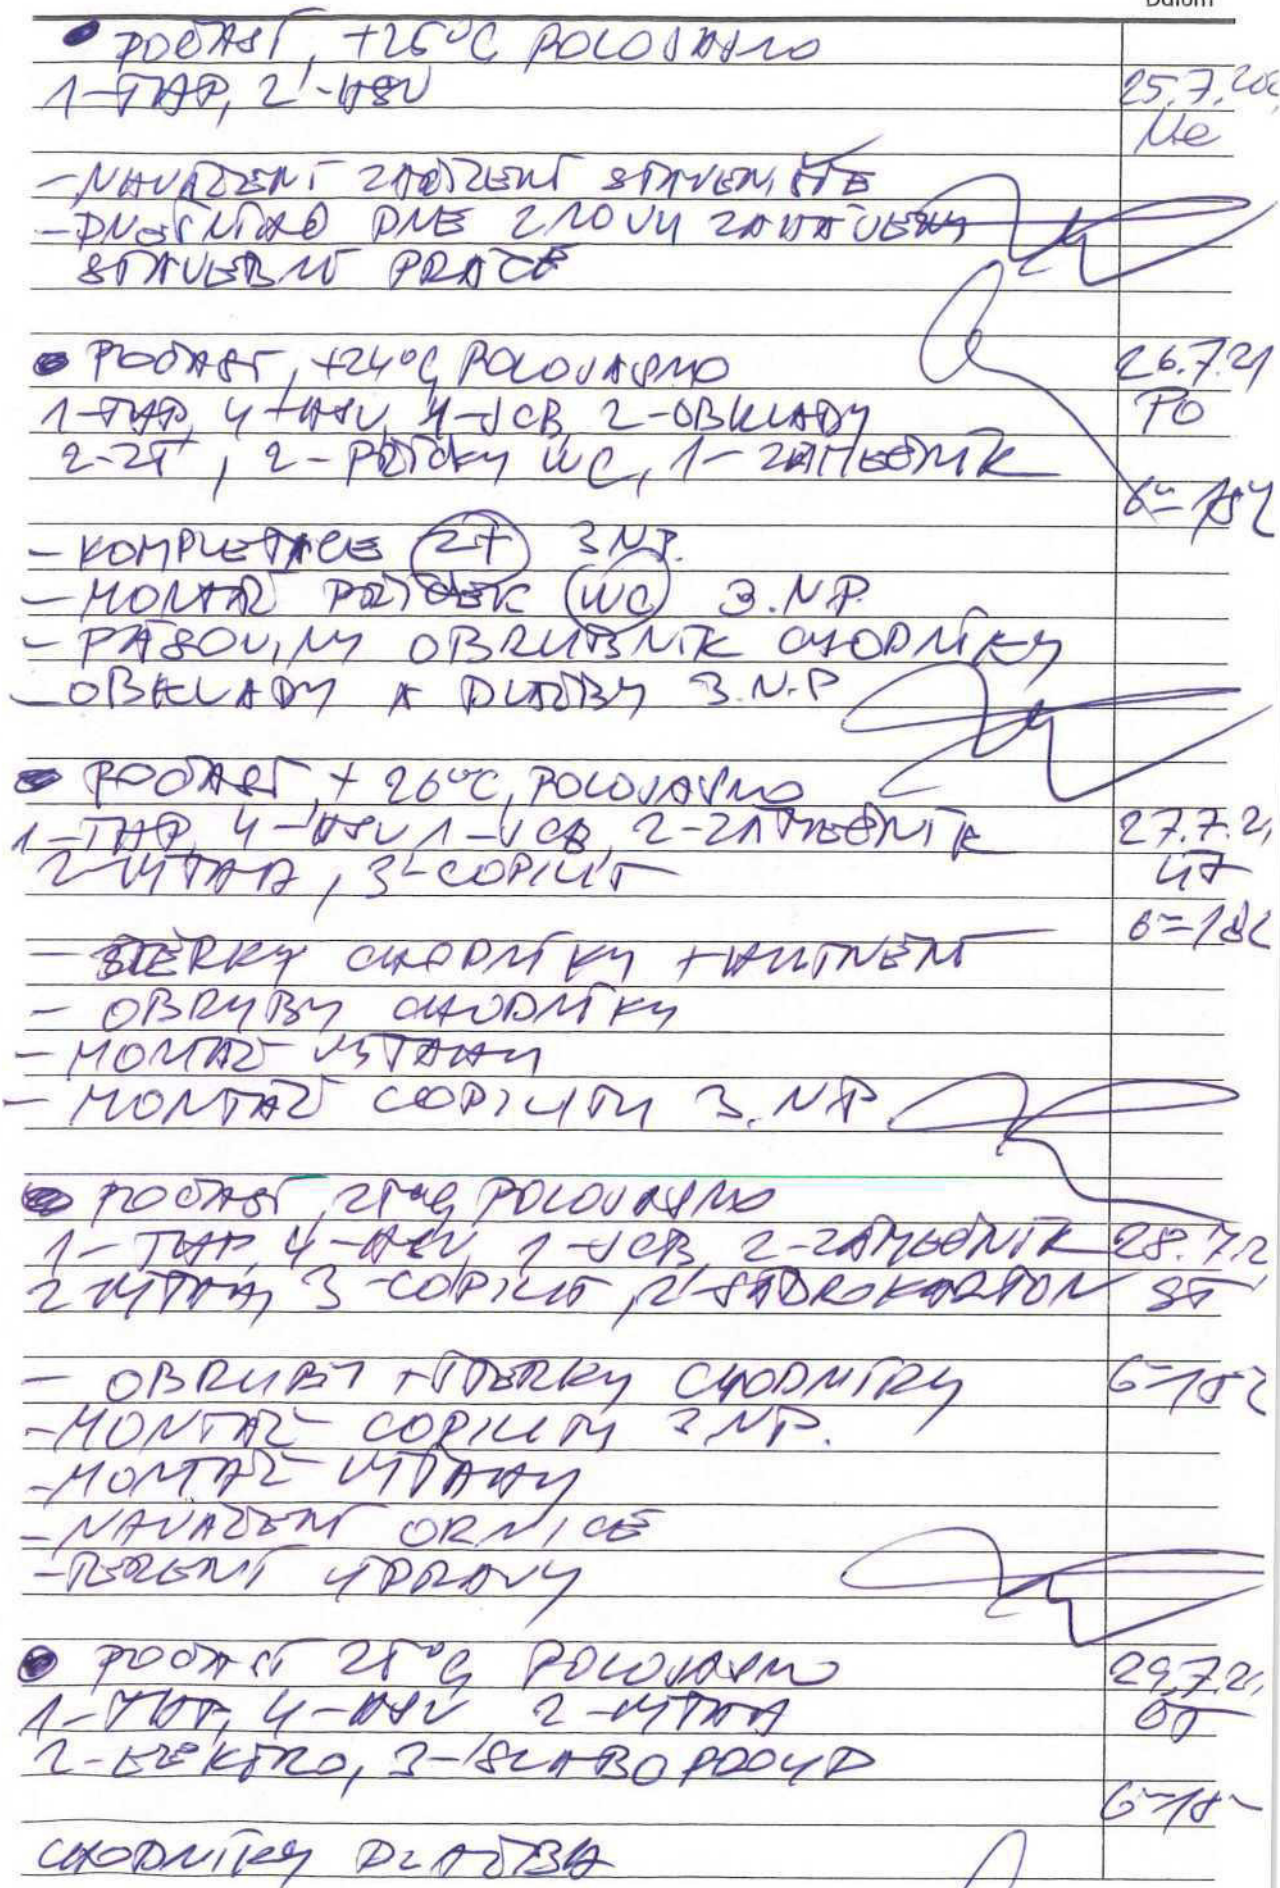 Datum
● POČASÍ, +25°C POLOJASNO
1-THP, 2-HSV
25.7.202
Ne
- NAVÁŽENÍ ZAŘÍZENÍ STAVENIŠTĚ
- DNEŠNÍHO DNE ZNOVU ZAHÁJENY
STAVEBNÍ PRÁCE
● POČASÍ, +24°C, POLOJASNO
26.7.21
1-THP, 4-HSV, 1-JCB, 2-OBKLADY
PO
2-ZT, 2-PŘÍČKY WC, 1-ZÁMEČNÍK
6°°-18°°
- KOMPLETACE ZT 3NP.
- MONTÁŽ PŘÍČEK WC 3.N.P.
- PÁSOVINY OBRUBNÍK CHODNÍKY
- OBKLADY A DLAŽBY 3.N.P
● POČASÍ, +26°C, POLOJASNO
1-THP, 4-HSV, 1-JCB, 2-ZÁMEČNÍK
27.7.21
2-VÝTAH, 3-COPILIT
ÚT
6°°-18°°
- ŠTĚRKY CHODNÍKY + HUTNĚNÍ
- OBRUBY CHODNÍKY
- MONTÁŽ VÝTAHY
- MONTÁŽ COPILITY 3.NP.
● POČASÍ, 25°C, POLOJASNO
1-THP, 4-HSV, 1-JCB, 2-ZÁMEČNÍK
28.7.2
2-VÝTAH, 3-COPILIT, 2-SÁDROKARTON
ST
- OBRUBY + ŠTĚRKY CHODNÍKY
6°°-18°°
- MONTÁŽ COPILITY 3NP.
- MONTÁŽ VÝTAHY
- NAVÁŽENÍ ORNICE
- TERENÍ ÚPRAVY
● POČASÍ 25°C POLOJASNO
29.7.21
1-THP, 4-HSV, 2-VÝTAH
ČT
2-ELEKTRO, 3-SLABOPROUD
6°°-18°°
CHODNÍKY DLAŽBA